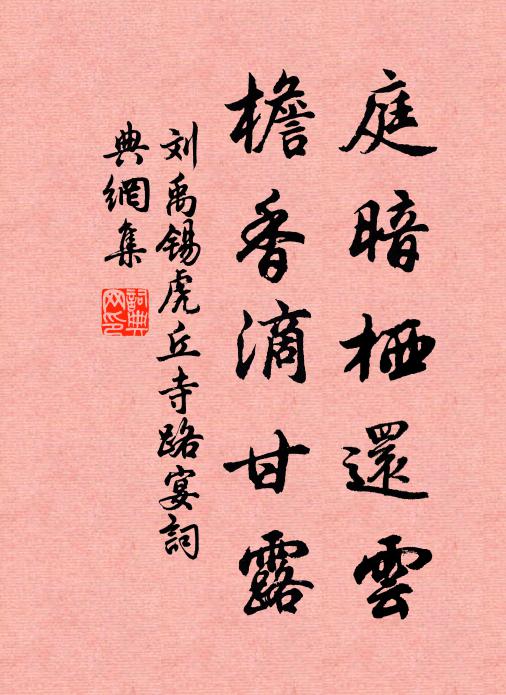 庭暗栖還雲
檐香滴甘露
刘禹锡虎丘寺路宴詞
典網集
詞典网印